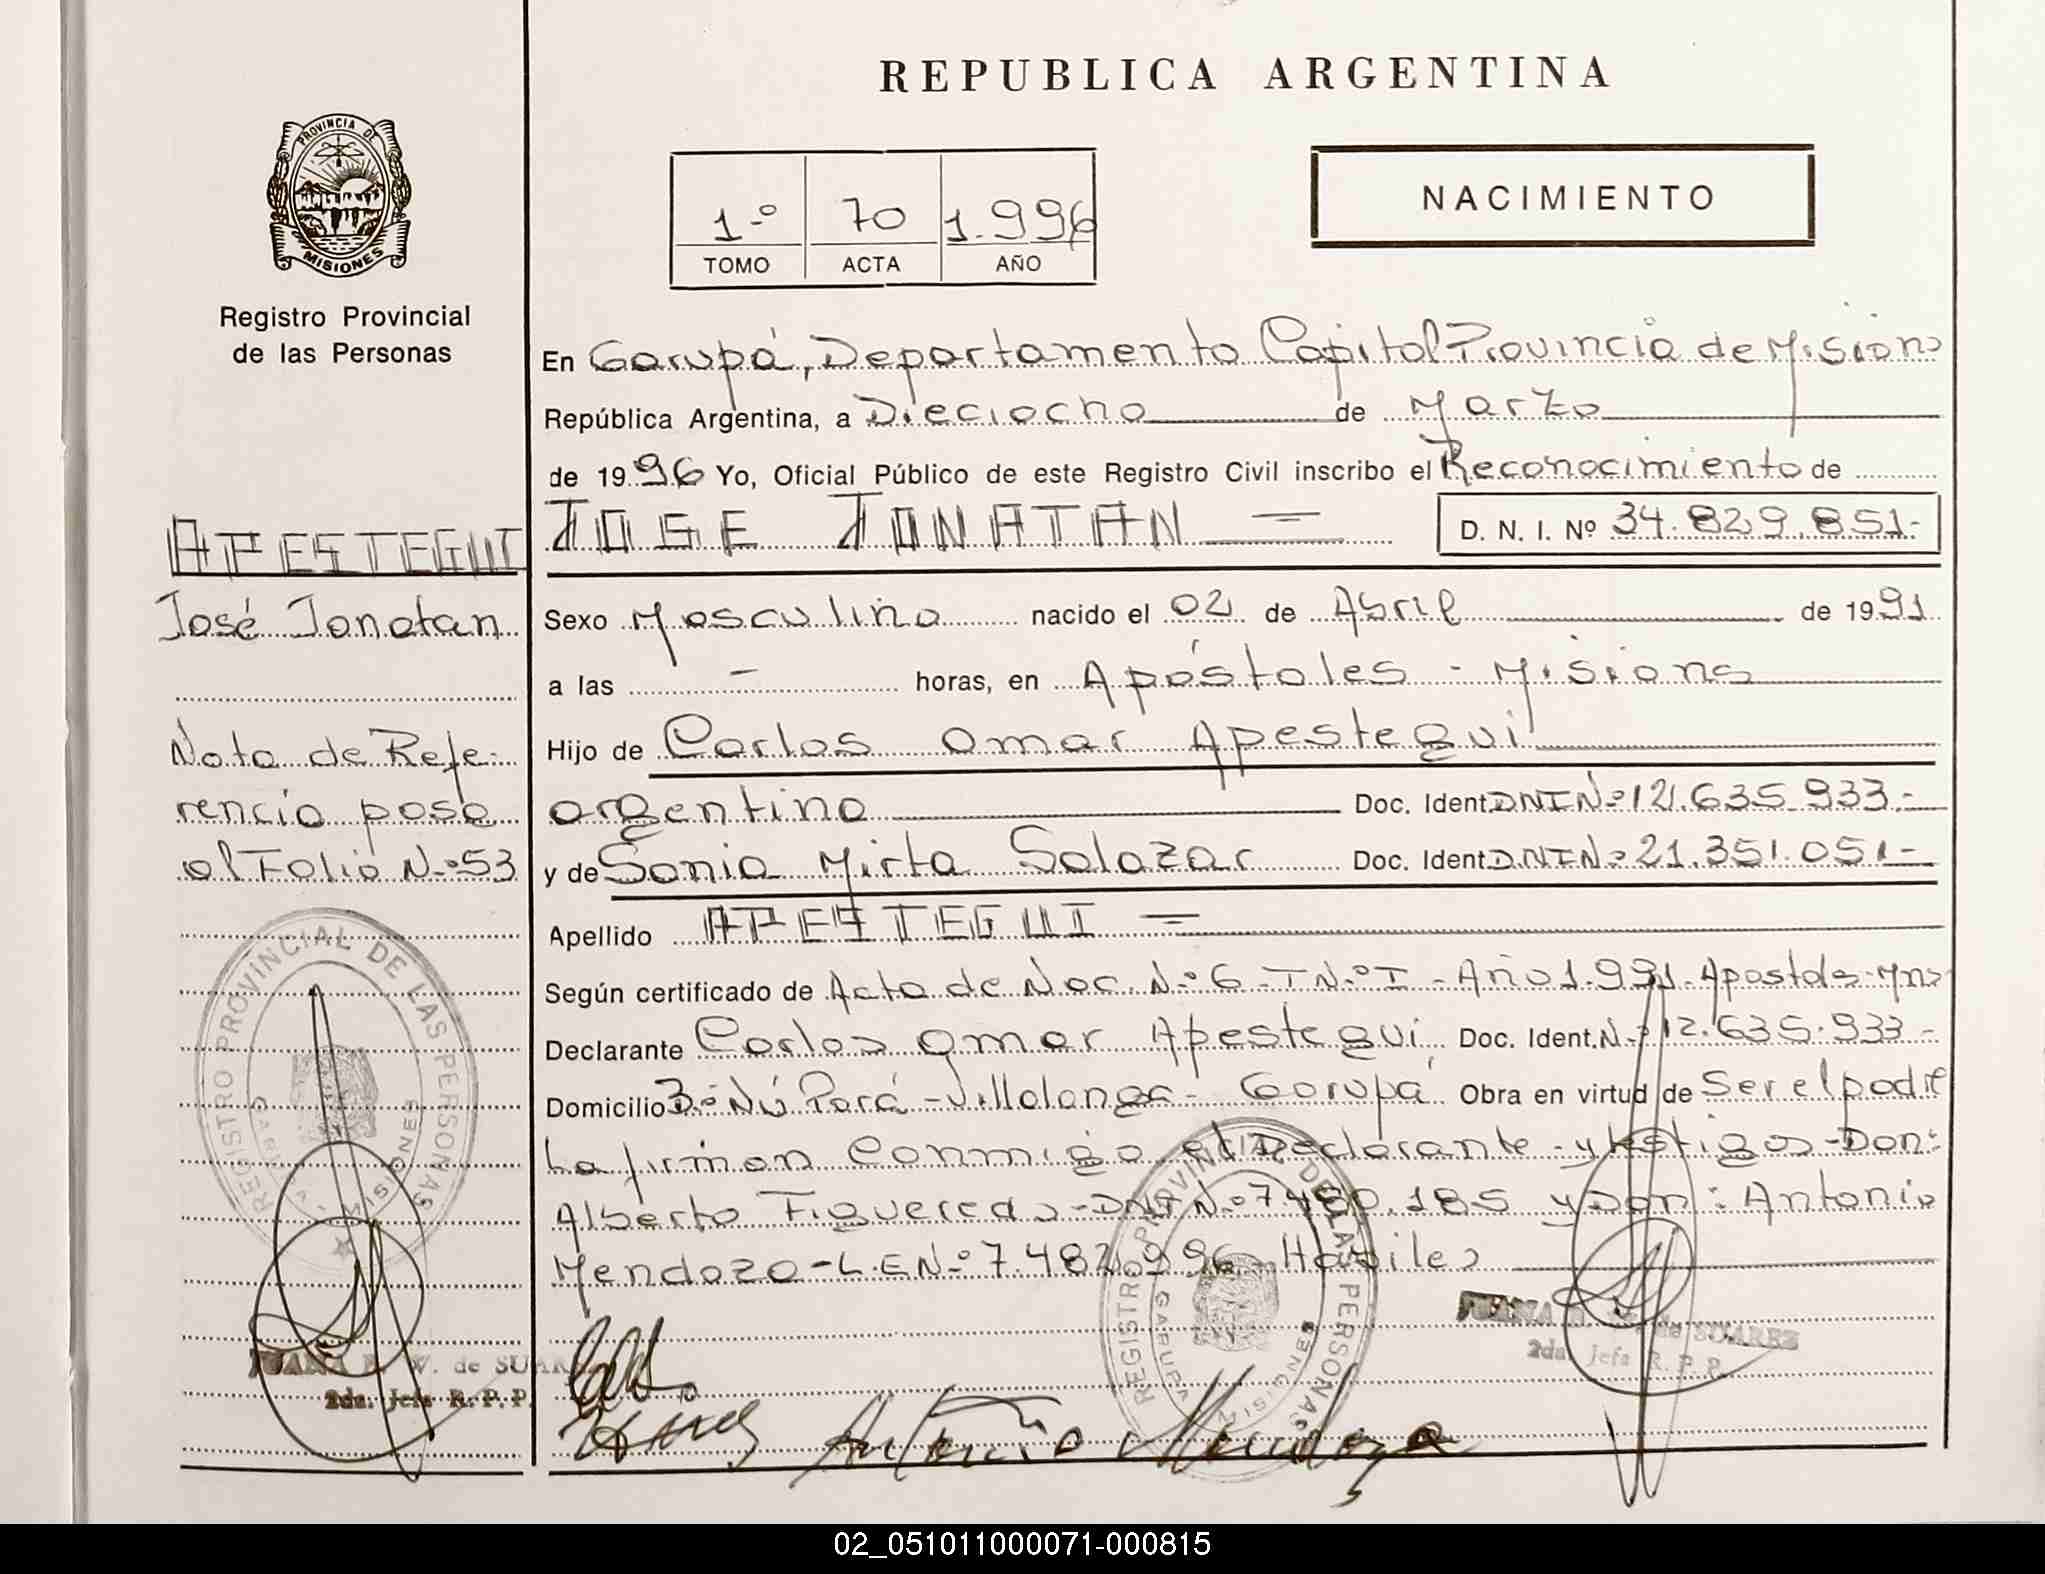 REPUBLICA ARGENTINA
PROVINCIA DE
MISIONES
Registro Provincial
de las Personas
1º 70 1.996
TOMO ACTA AÑO
NACIMIENTO
En Garupá, Departamento Capital Provincia de Misions
República Argentina, a Dieciocho de Marzo
de 1996 Yo, Oficial Público de este Registro Civil inscribo el Reconocimiento de
JOSE JONATAN D. N. I. Nº 34.829.851-
Sexo Masculino nacido el 02 de Abril de 1991
a las - horas, en Apóstoles - Misions
Hijo de Carlos Omar Apestegui
argentino Doc. Ident. DNI Nº 12.635.933.-
y de Sonia Mirta Salazar Doc. Ident. DNI Nº 21.351.051-
Apellido APESTEGUI
Según certificado de Acta de Nac. Nº 6 - T Nº I - Año 1.991. Apostols - Mns
Declarante Carlos Omar Apestegui Doc. Ident. Nº 12.635.933-
Domicilio Bº Ñú Porá - Villalonga - Garupá Obra en virtud de Ser el padre
La firman Conmigo el Declarante y testigos - Don:
Alberto Figueredo - DNI Nº 7.480.185 y Don: Antonio
Mendoza - L.E Nº 7.482.996 - Habiles
APESTEGUI
José Jonatan
Nota de Refe-
rencia pasa
al Folio Nº 53
REGISTRO PROVINCIAL DE LAS PERSONAS
GARUPA
MISIONES
JUANA de SUAREZ
2da. Jefa R. P. P.
REGISTRO PROVINCIAL DE LAS PERSONAS
GARUPA
MISIONES
JUANA de SUAREZ
2da. Jefa R. P. P.
Antonio Mendoza
02_051011000071-000815